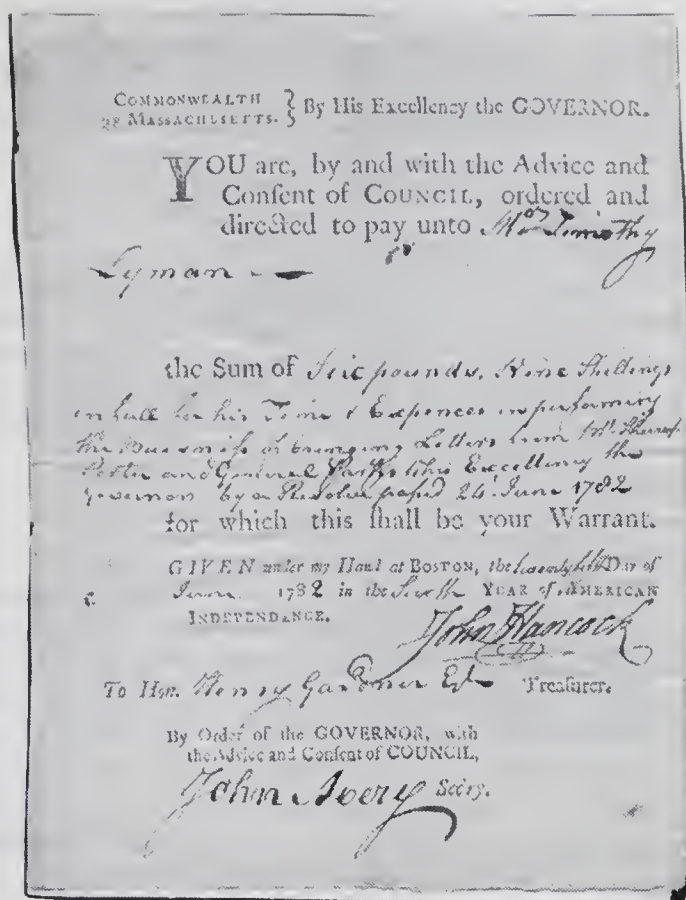 COMMONWEALTH
OF MASSACHUSETTS. } By His Excellency the GOVERNOR.
YOU are, by and with the Advice and
Conſent of COUNCIL, ordered and
directed to pay unto Mr. Timothy
Lyman
the Sum of Six pounds, Nine Shillings
in full for his Time & Expences in performing
the Business of bringing Letters from Mr. Sheriff
Porter and General Park to his Excellency the
Governor by a Resolve passed 24 June 1782
for which this ſhall be your Warrant.
GIVEN under my Hand at BOSTON, the twenty fifth Day of
June 1782 in the Sixth YEAR of AMERICAN
INDEPENDANCE.
John Hancock
To Hon. Henry Gardner Esq Treaſurer.
By Order of the GOVERNOR, with
the Advice and Conſent of COUNCIL,
John Avery Secry.